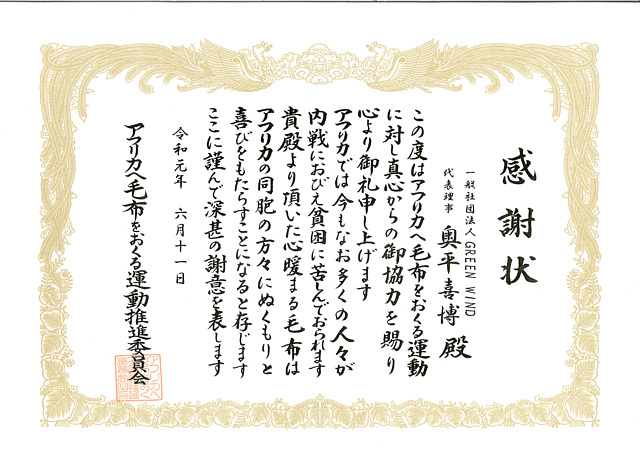 感謝状
一般社団法人 GREEN WIND
代表理事 奥平喜博 殿
この度はアフリカへ毛布をおくる運動
に対し真心からの御協力を賜り
心より御礼申し上げます
アフリカでは今もなお多くの人々が
内戦におびえ貧困に苦しんでおられます
貴殿より頂いた心暖まる毛布は
アフリカの同胞の方々にぬくもりと
喜びをもたらすことになると存じます
ここに謹んで深甚の謝意を表します
令和元年 六月十一日
アフリカへ毛布をおくる運動推進委員会